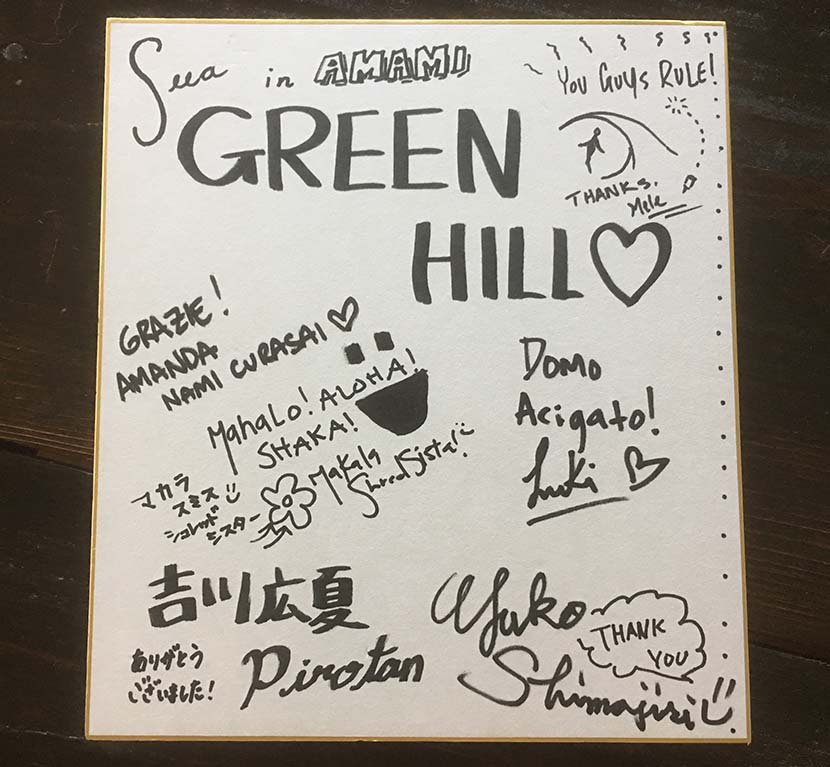 in AMAMI
YOU GUYS RULE!
GREEN
HILL
THANKS,
Mele
GRAZIE!
AMANDA
NAMI CURASAI
MAHALO! ALOHA!
SHAKA!
Makala
Shred Sista!
マカラ
スミス
シュレッド
シスター
DOMO
Arigato!
Luki
吉川広夏
ありがとう
ございました!
Pirotan
Yuko
Shimajiri
THANK
YOU